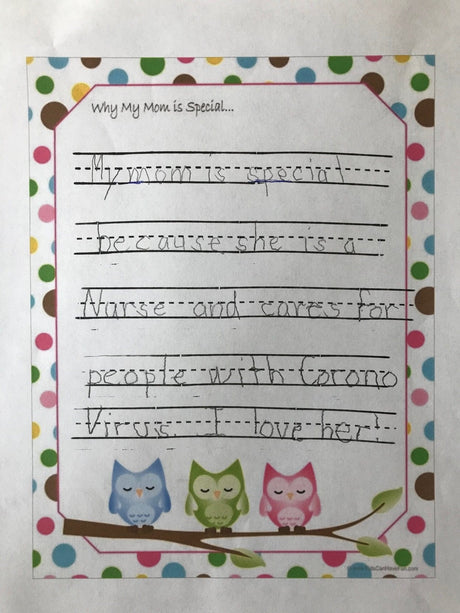 Why My Mom is Special...
My mom is special
because she is a
Nurse and cares for
people with Corono
Virus. I love her!